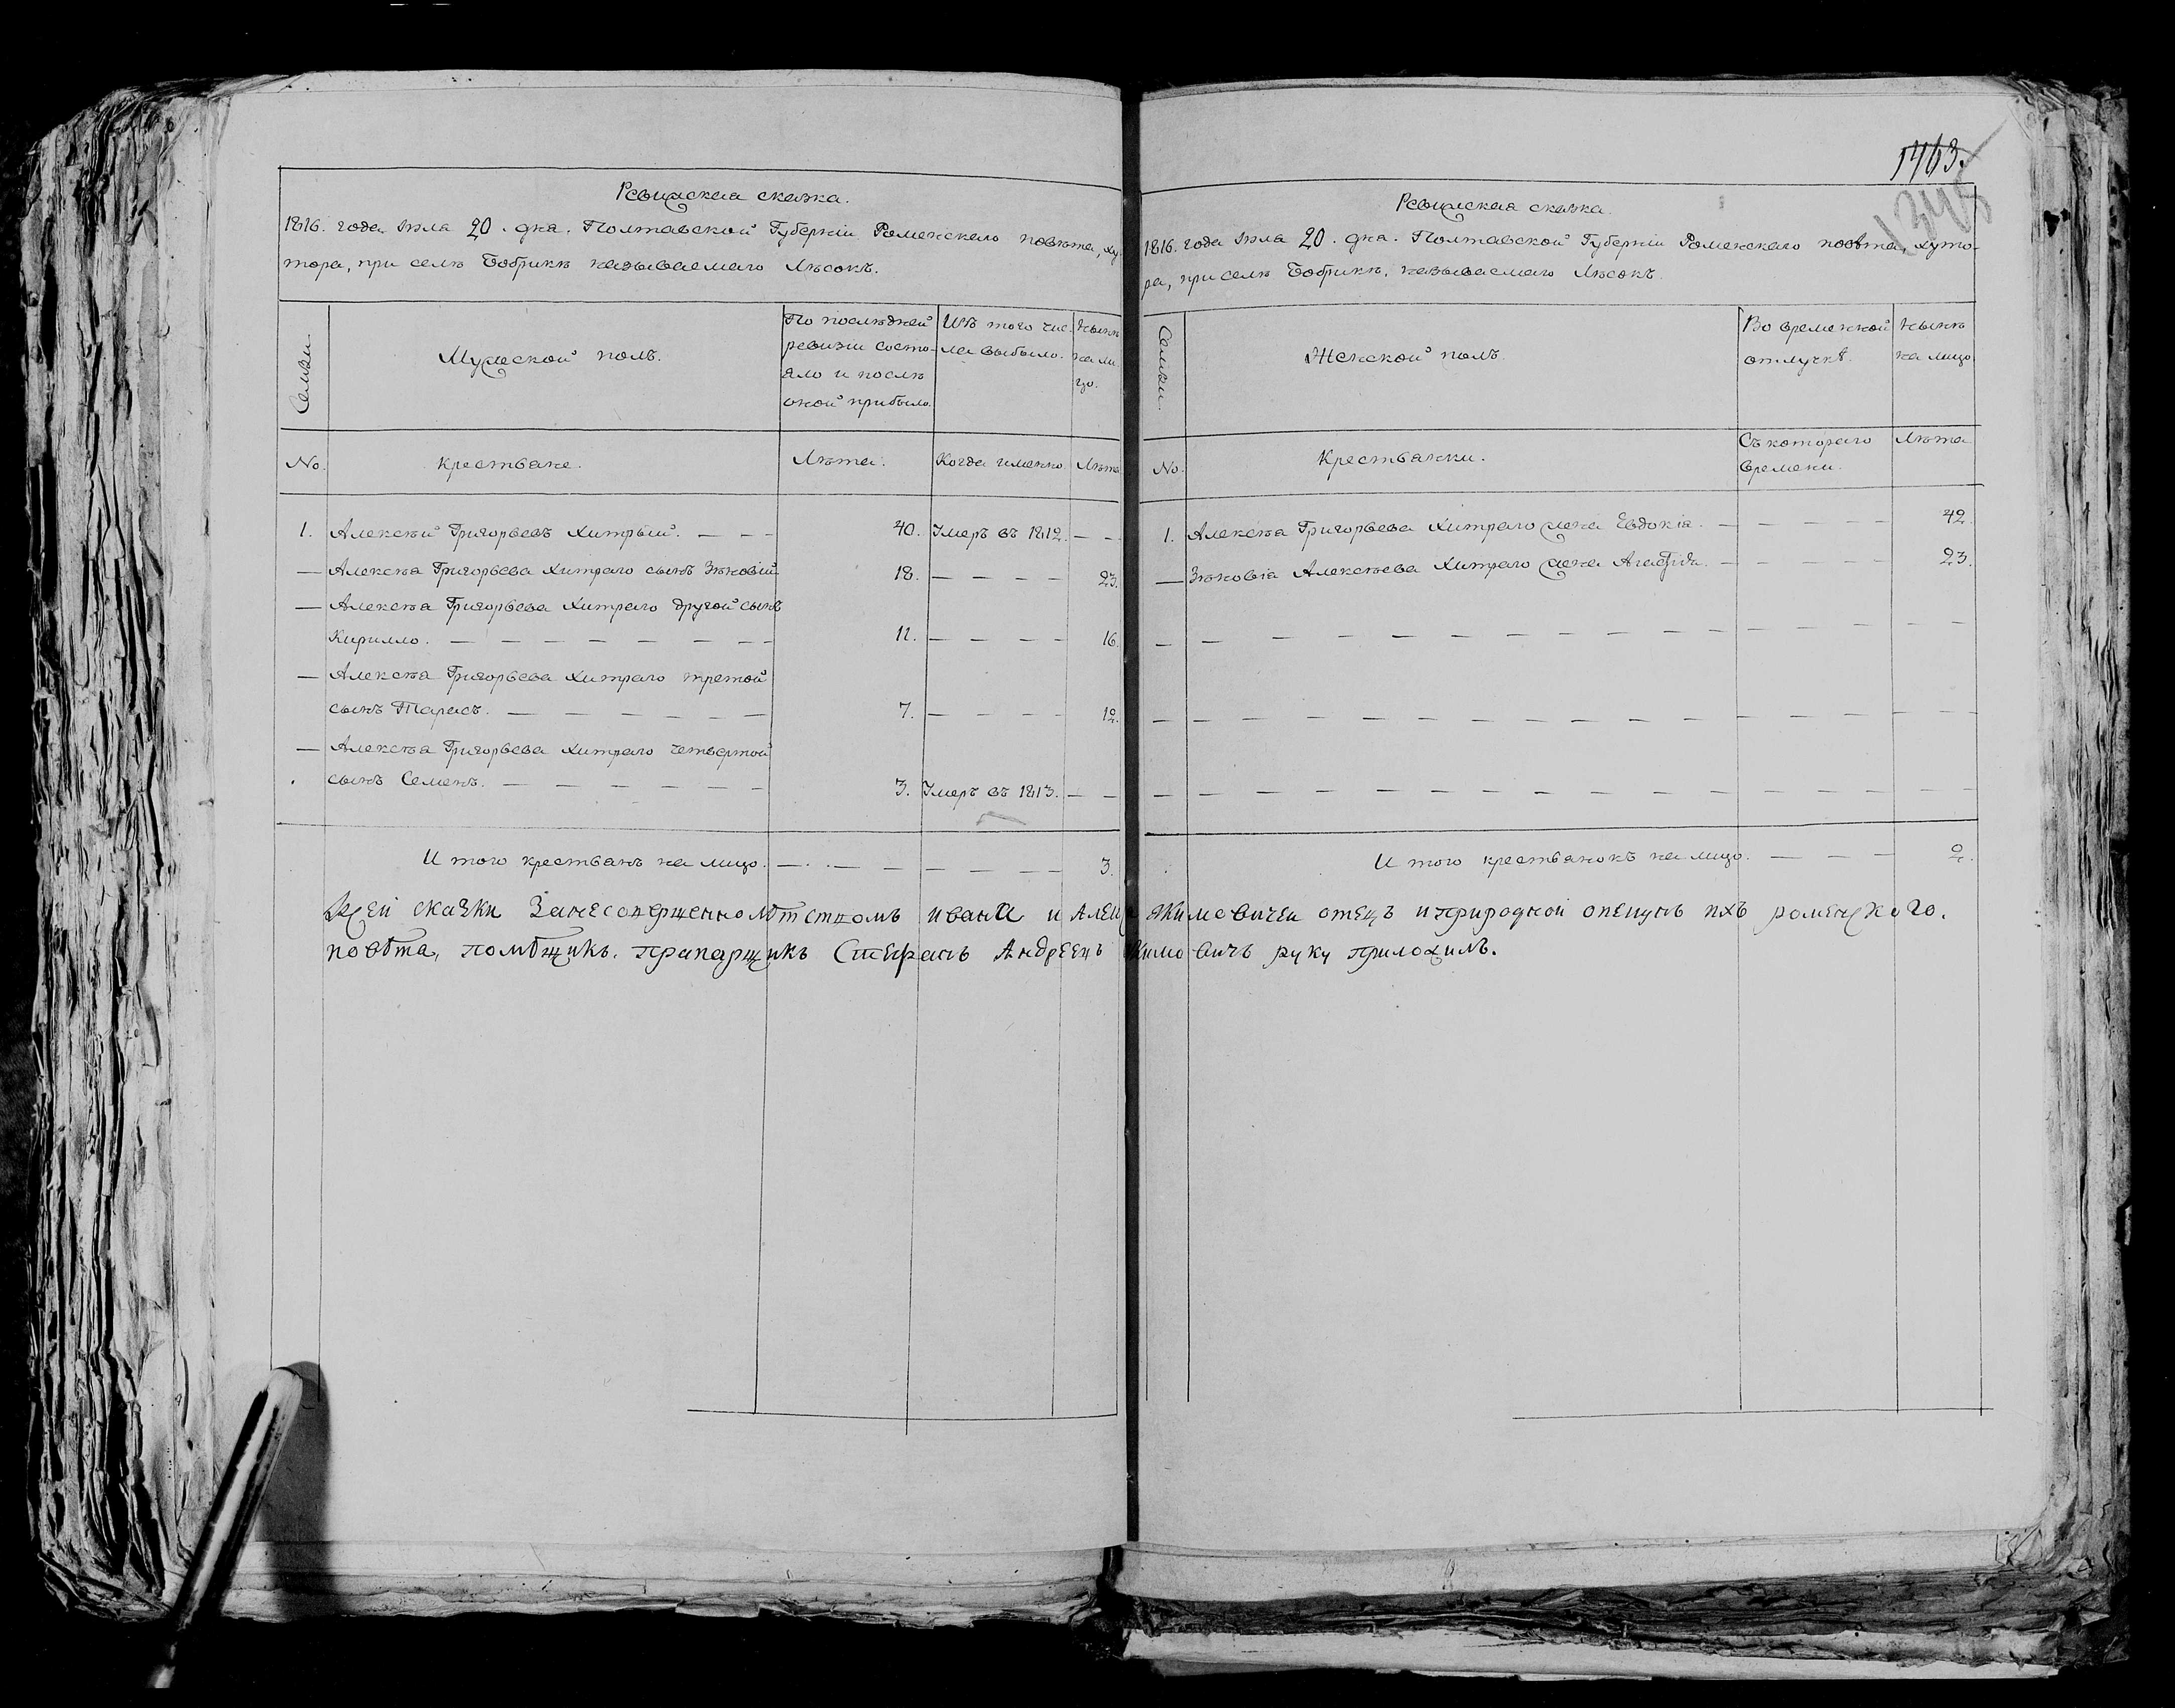 1463.
1348
Ревижская сказка.
1816. года Июла 20. дня. Полтавской Губерніи Роменскаго повѣта, ху-
тора, при селѣ Бобрикѣ называемаго Лѣсокъ.
Семьи.
Мужеской полъ.
По послѣдней
ревизіи состо-
яло и послѣ
оной прибыло.
Изъ того чис-
ла выбыло.
Нынѣ
на ли-
цо.
No.
Крестьане.
Лѣта.
Когда именно.
Лѣта
1. Алексѣй Григорьевъ Хитрый. — — — 40. Умеръ въ 1812. — —
— Алексѣа Григорьева Хитраго сынъ Зѣновій 18. — — — — 23.
— Алексѣа Григорьева Хитраго другой сынъ
Кирилло. — — — — — — — — 11. — — — — 16.
— Алексѣа Григорьева Хитраго третой
сынъ Тарасъ. — — — — — — 7. — — — — 12.
— Алексѣа Григорьева Хитраго четвертой
сынъ Семенъ. — — — — — — 3. Умеръ въ 1813. — —
И того крестьанъ на лицо. — — — — — — — 3.
Ревижская сказка.
1816. года Июла 20. дна. Полтавской Губерніи Роменскаго повѣта, хуто-
ра, при селѣ Бобрикѣ, называемаго Лѣсокъ.
Семьи.
Женской полъ.
Во временной
отлучкѣ.
Нынѣ
на лицо
No.
Крестьанки.
Съ котораго
времени.
Лѣта
1. Алексѣа Григорьева Хитраго жена Евдокіа. — — — — — 42.
— Зѣновіа Алексѣева Хитраго жена Агафіа. — — — — — 23.
И того крестьанокъ на лицо. — — — 2.
Ксей скаски Занесовершеннолѣтствомъ ивана и Алеѯ Якимовичеи отецъ иприродной опекунъ ихъ роменскаго.
повѣта, помѣщикъ. прапарщикъ Стефанъ Андреевъ Якимовичъ руку приложилъ.